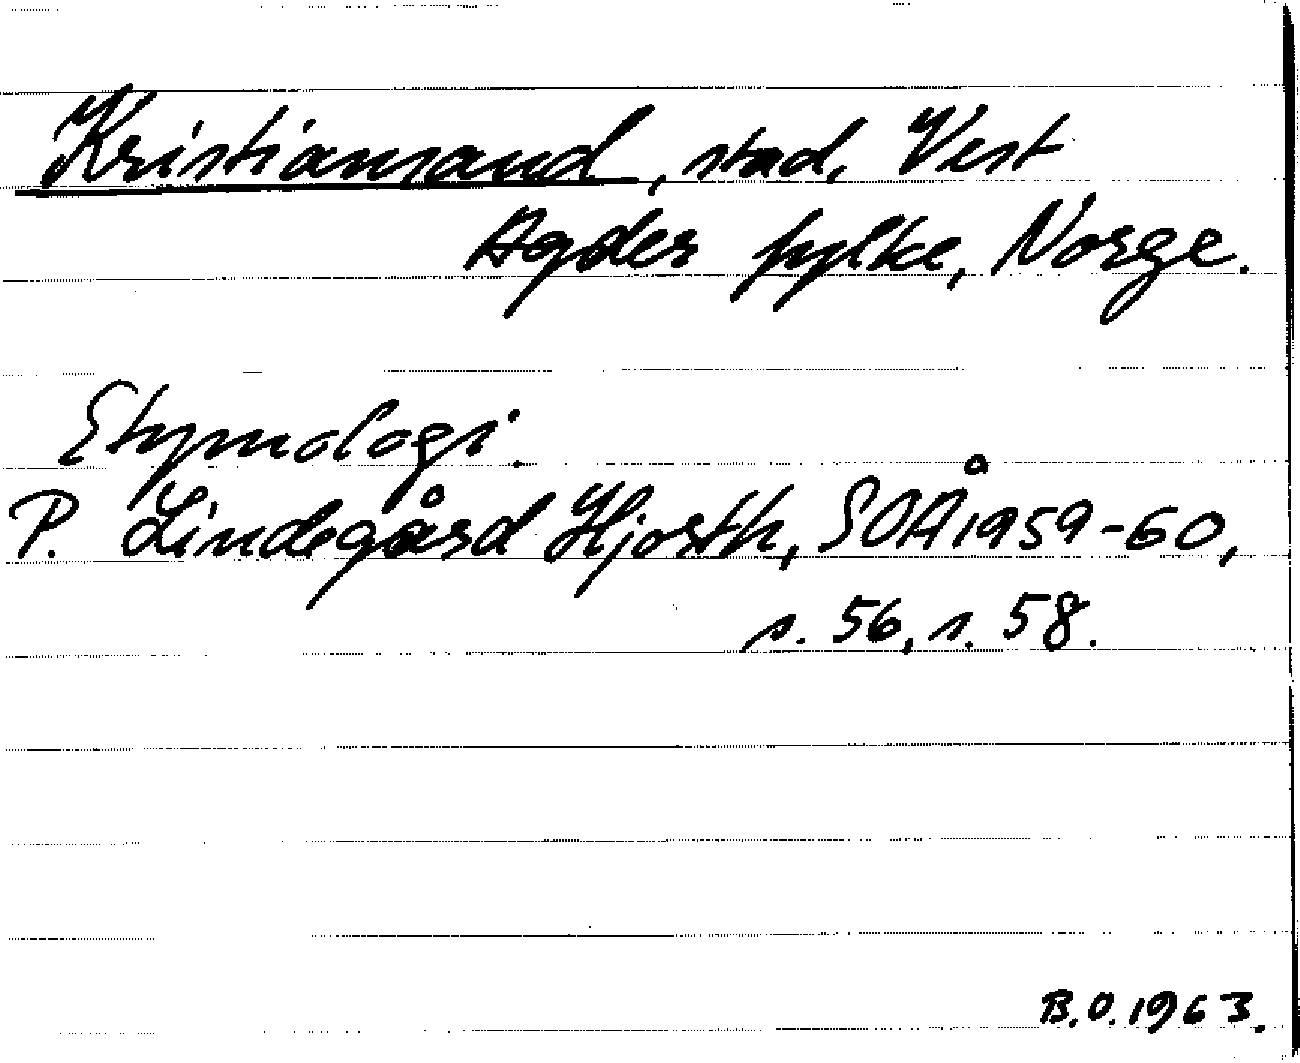 Kristiansand, stad, Vest
Agder fylke, Norge.
Etymologi.
P. Lindegård Hjorth, SOÅ 1959-60,
s. 56, s. 58.
B.O. 1963.